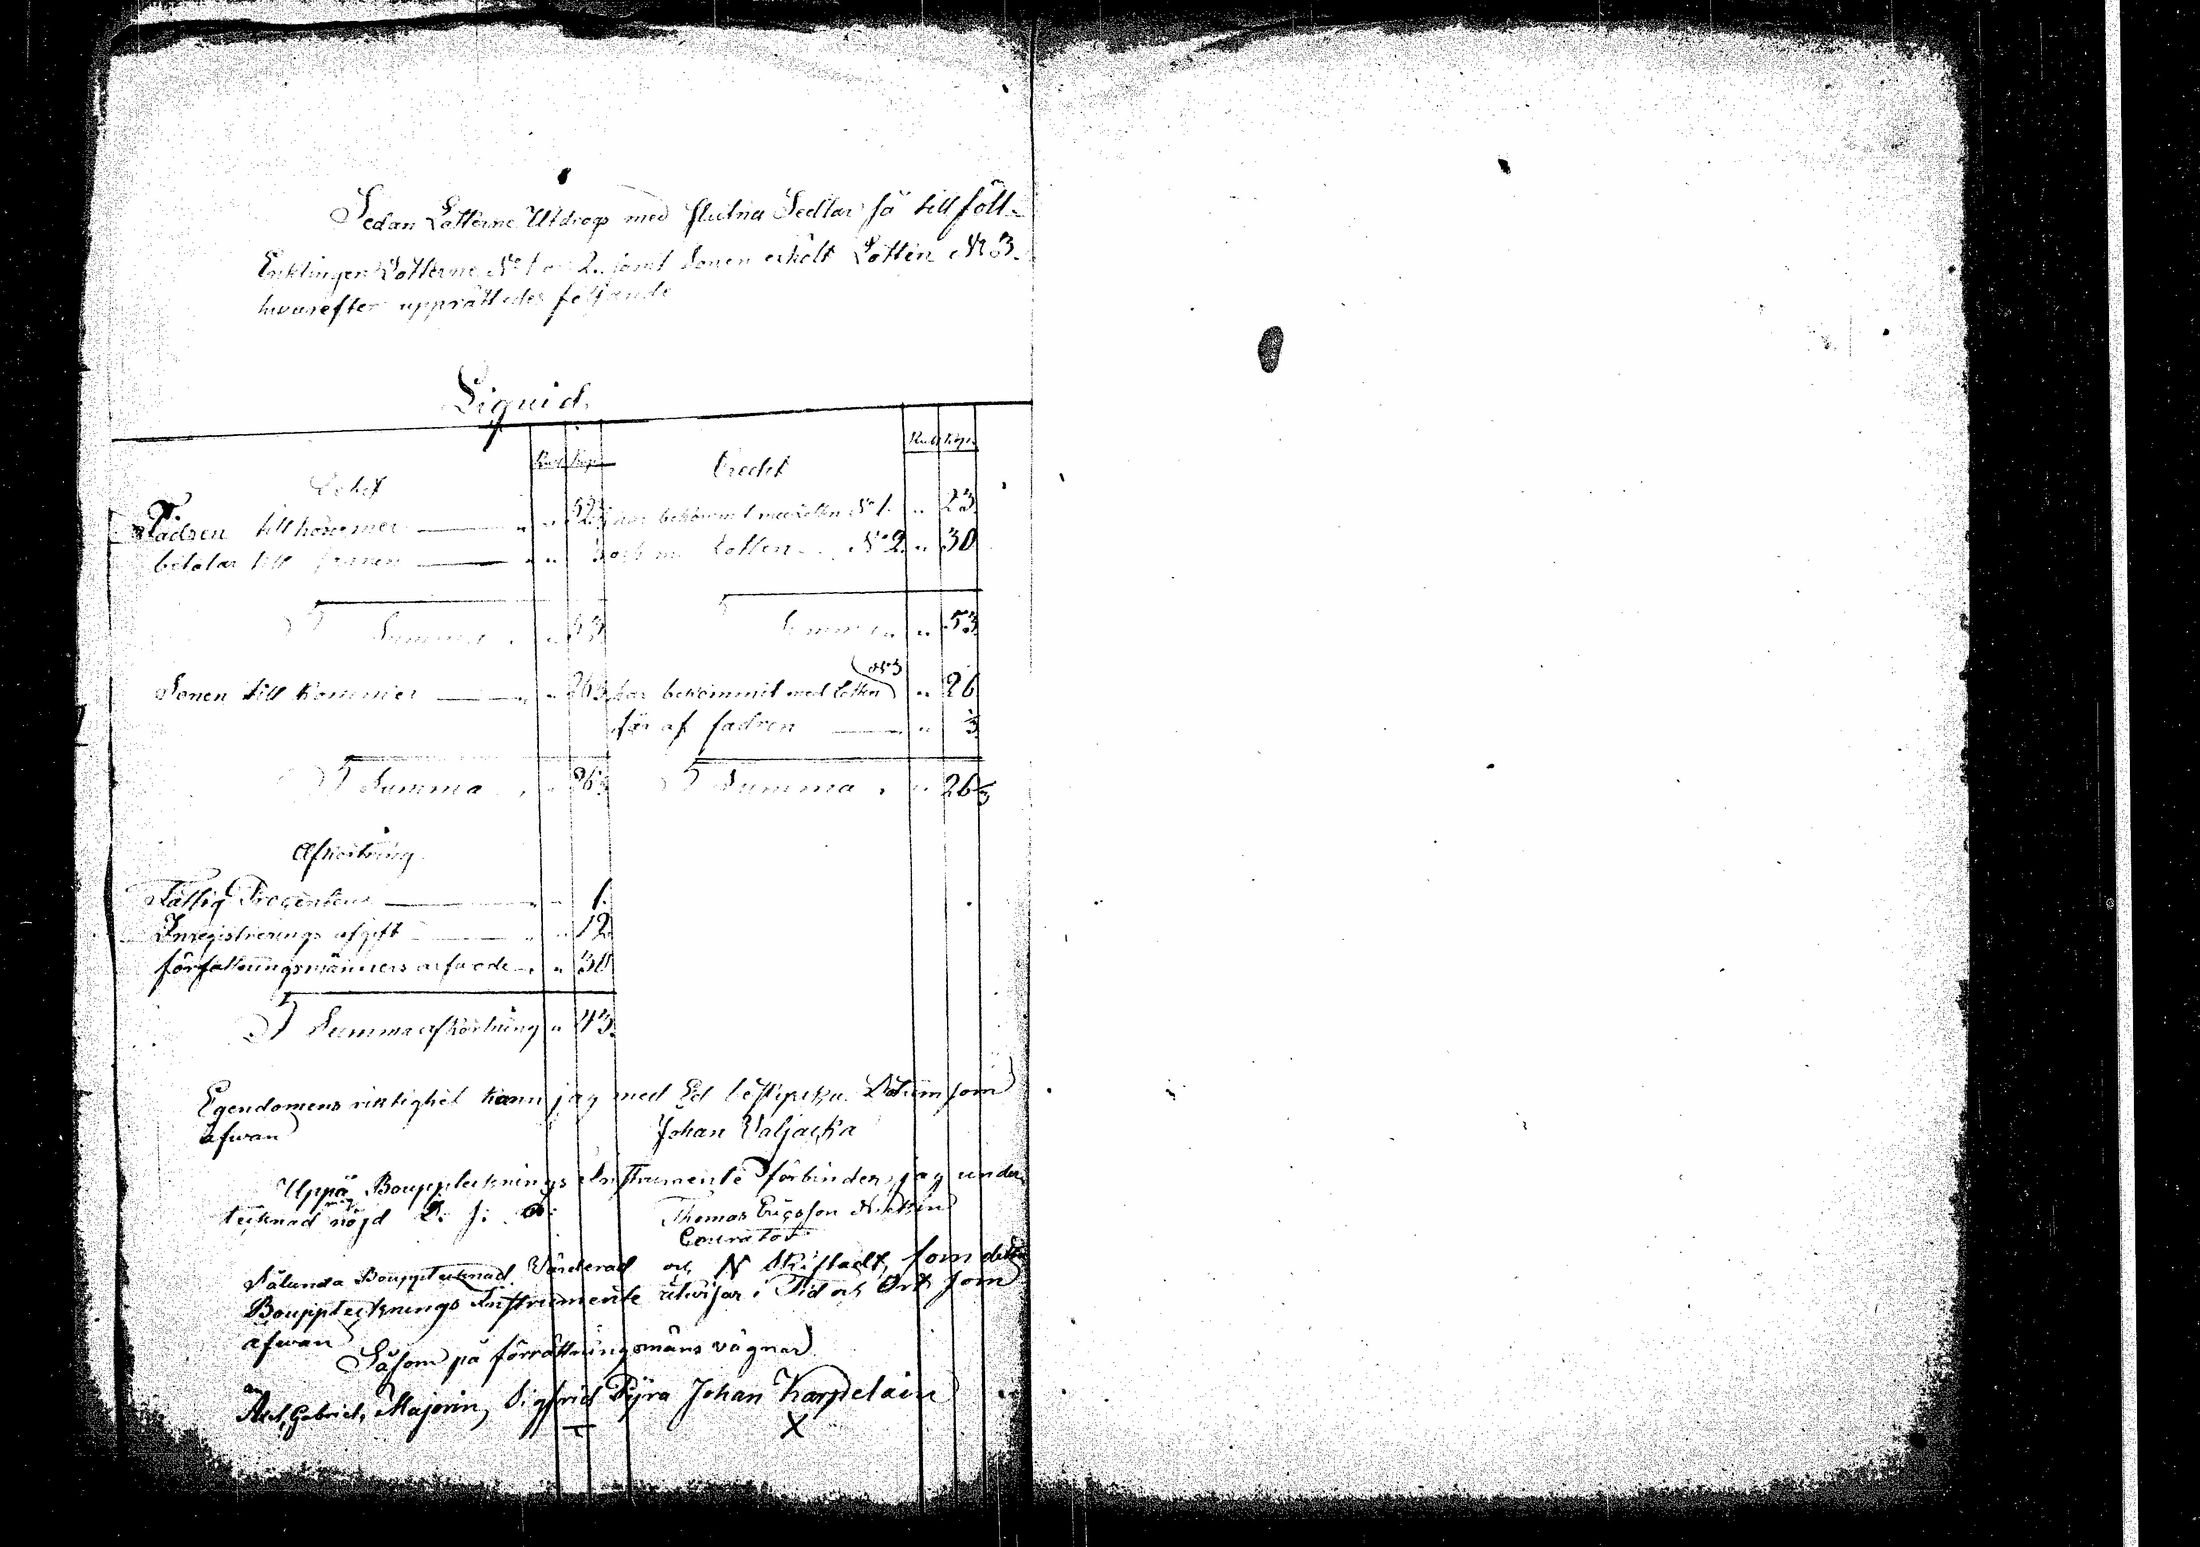 Sedan Lotterne Utdrogs med slutna Sedlar så tillföll
Enklingen Lotterne No 1 o 2. samt Sonen erhölt Lotten No 3.
hwarefter upprättades följande
Liquid.
Debet Rub Kop Credit Rub Kop
Fadren tillkommer " " 52 har bekommit med Lotten No 1. " 23
betalar till sonen " " och me Lotten No 2. " 30
Summa " 53 Summa " 53
Sonen till kommer " " 26 har bekommit med Lotten No 3 " 26
får af fadren " 1/3
Summa " 26 1/3 Summa " 26 1/3
Afkortning
Fattig Procenten " " 1.
Inregistrerings afgift " " 12
författningsmänners arfwode " " 30
Summa afkortning " 43.
Egendomens riktighet kann jag med Ed bestyrcka Datum som
afwan Johan Valjacka
Uppå Bouppteknings Instrumente förbinder jag under
teknad mig nöjd D: J: Thomas Ericsson
Curator
Sålunda Bouppteknad Värderad och skiftadt, som detta
Boupptecknings Instrumente utwisar i Tid och Ort som
afwan
Såsom på förrättningsmäns vägnar
Axel Gabriel Majorin, Sigfrid Pyra Johan Karpelain
X